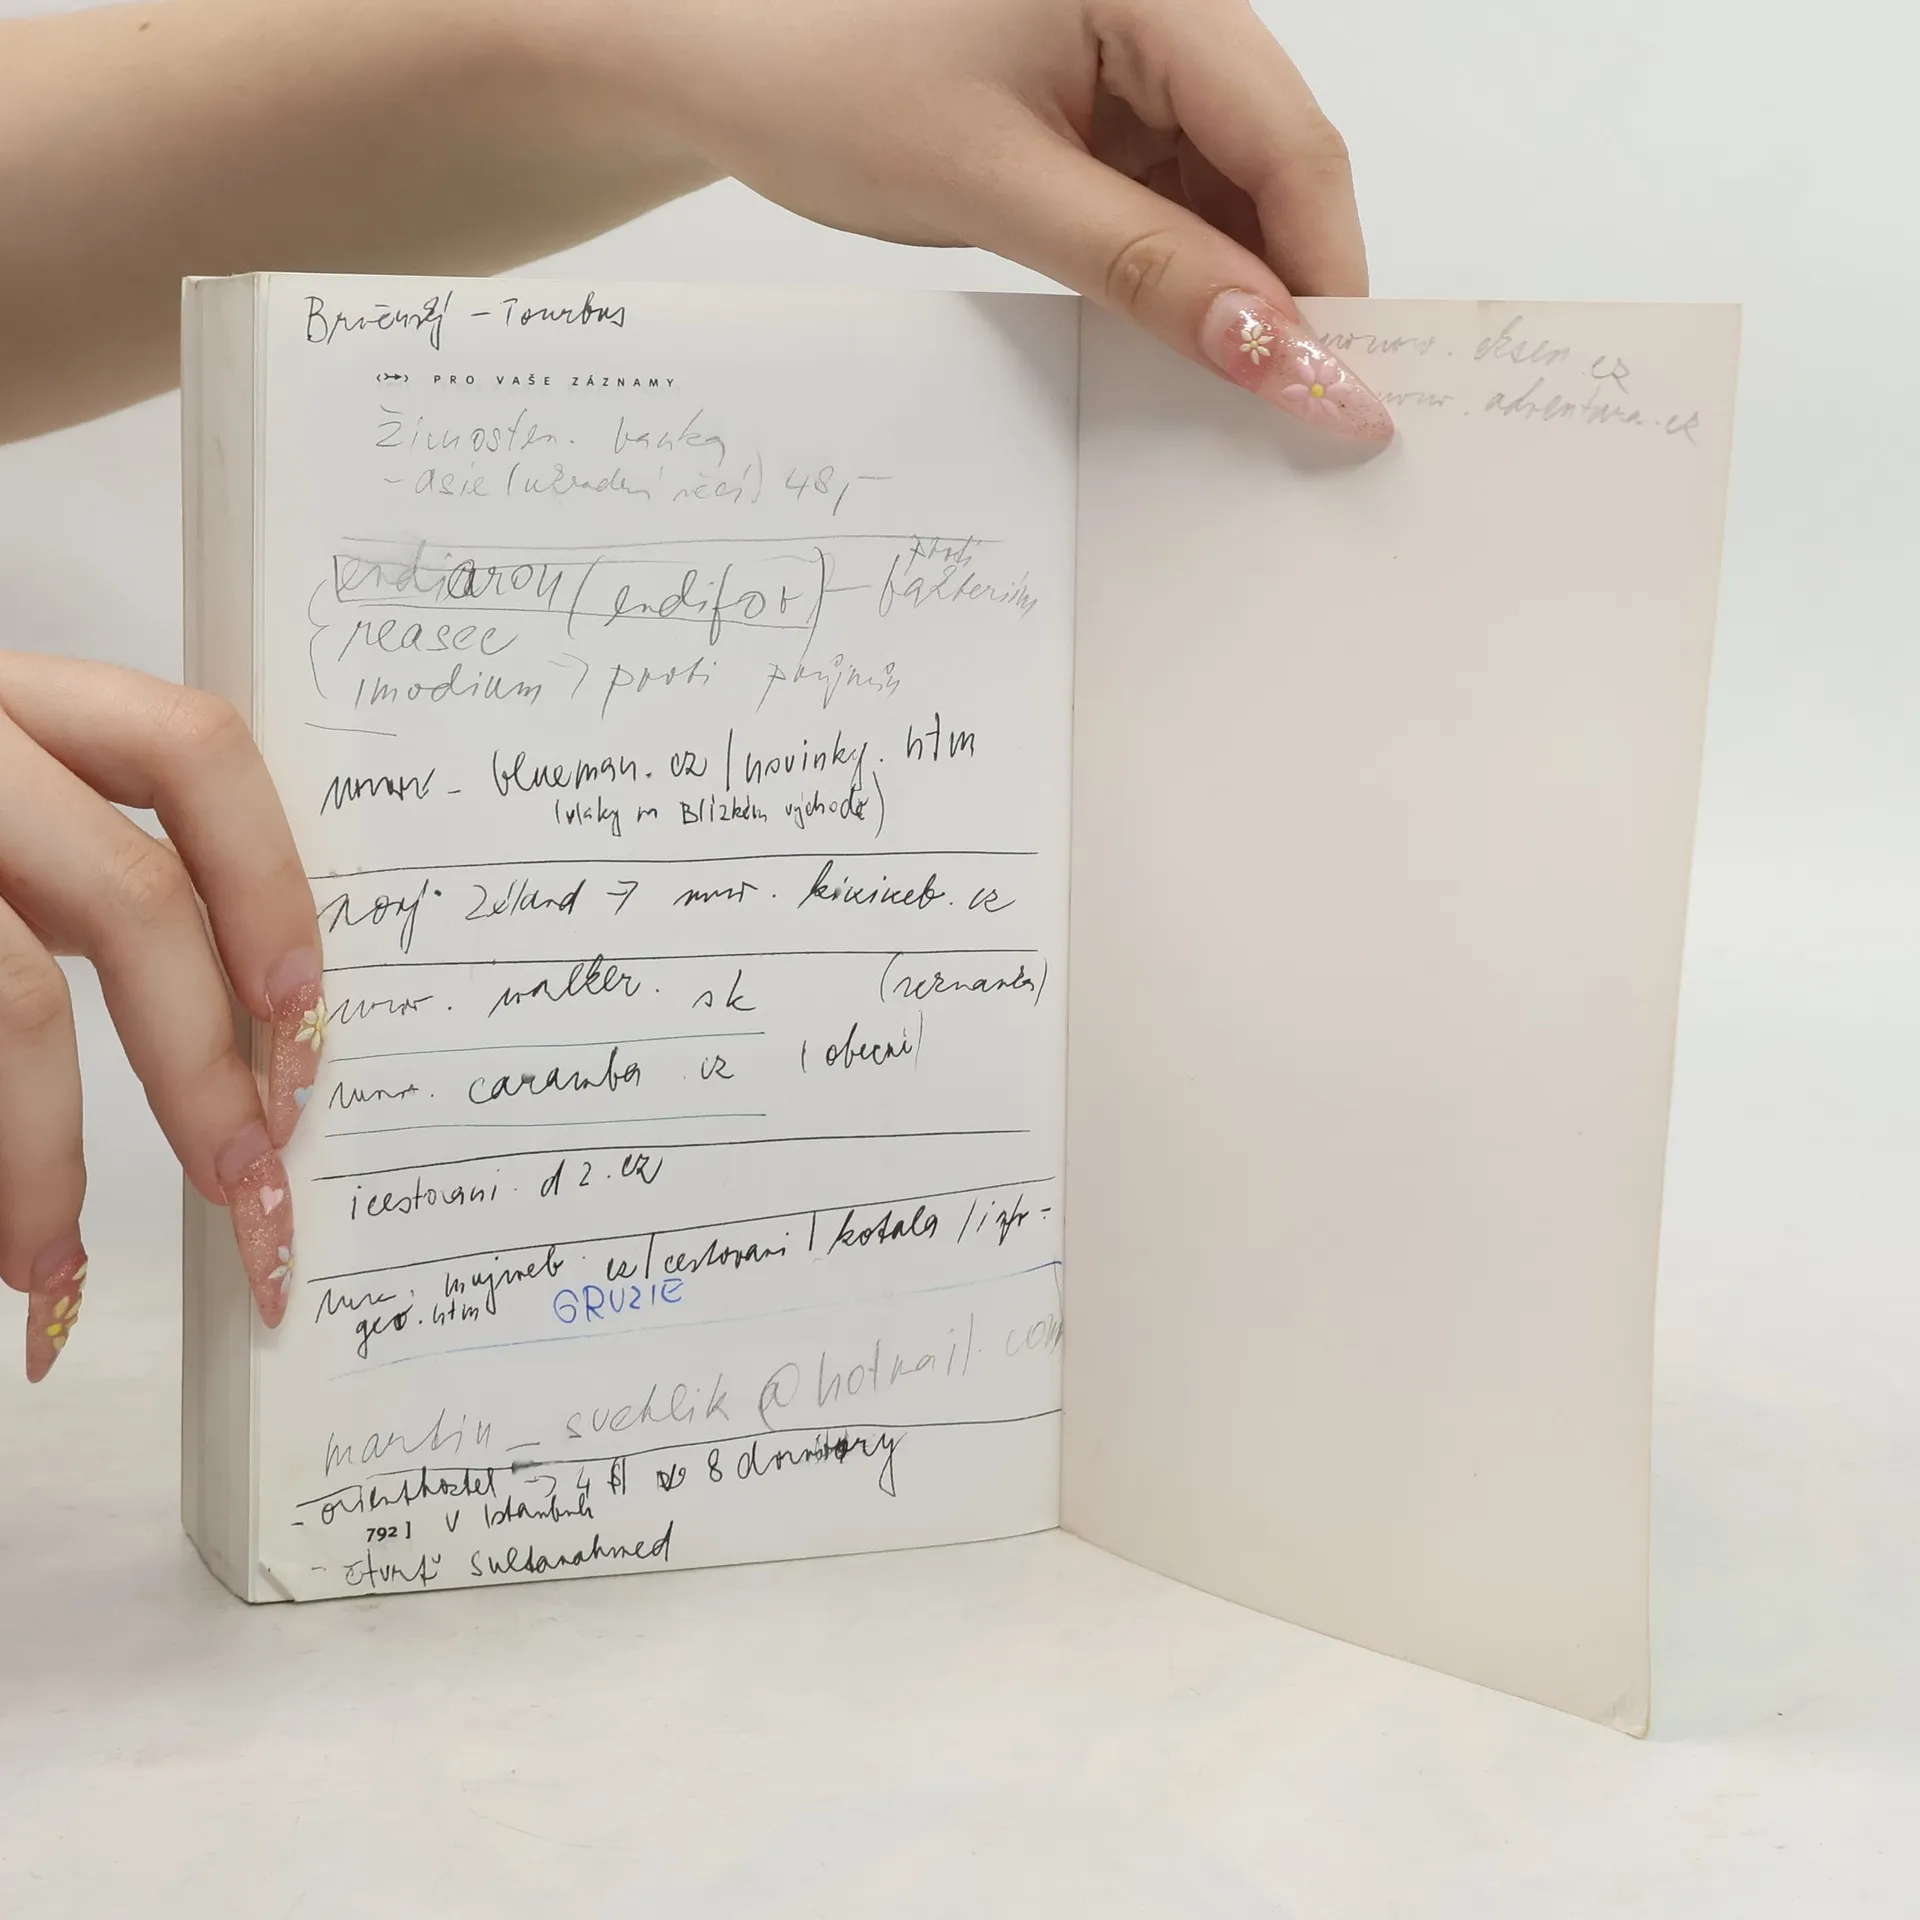 - Tourbus
PRO VAŠE ZÁZNAMY
Živnosten. banka
- asie (úřední řečí) 48,-
endiaron (endifor) - proti bakteriím
reasec
imodium → proti průjmům
www. blueman.cz/novinky.htm
(vlaky na Blízkém východě)
Nový Zéland → www. kiwiweb.cz
www. walker. sk (seznamka)
www. caramba .cz (obecní)
icestovani. d2.cz
www. mujweb.cz/cestovani/kotala/
geo.htm GRUZIE
martin_suchlik@hotmail.com
- orienthostel → 4 $ 8 dormitory
v Istanbulu
792]
- čtvrť Sultanahmed
www. eksen.cz
www. adventura.cz